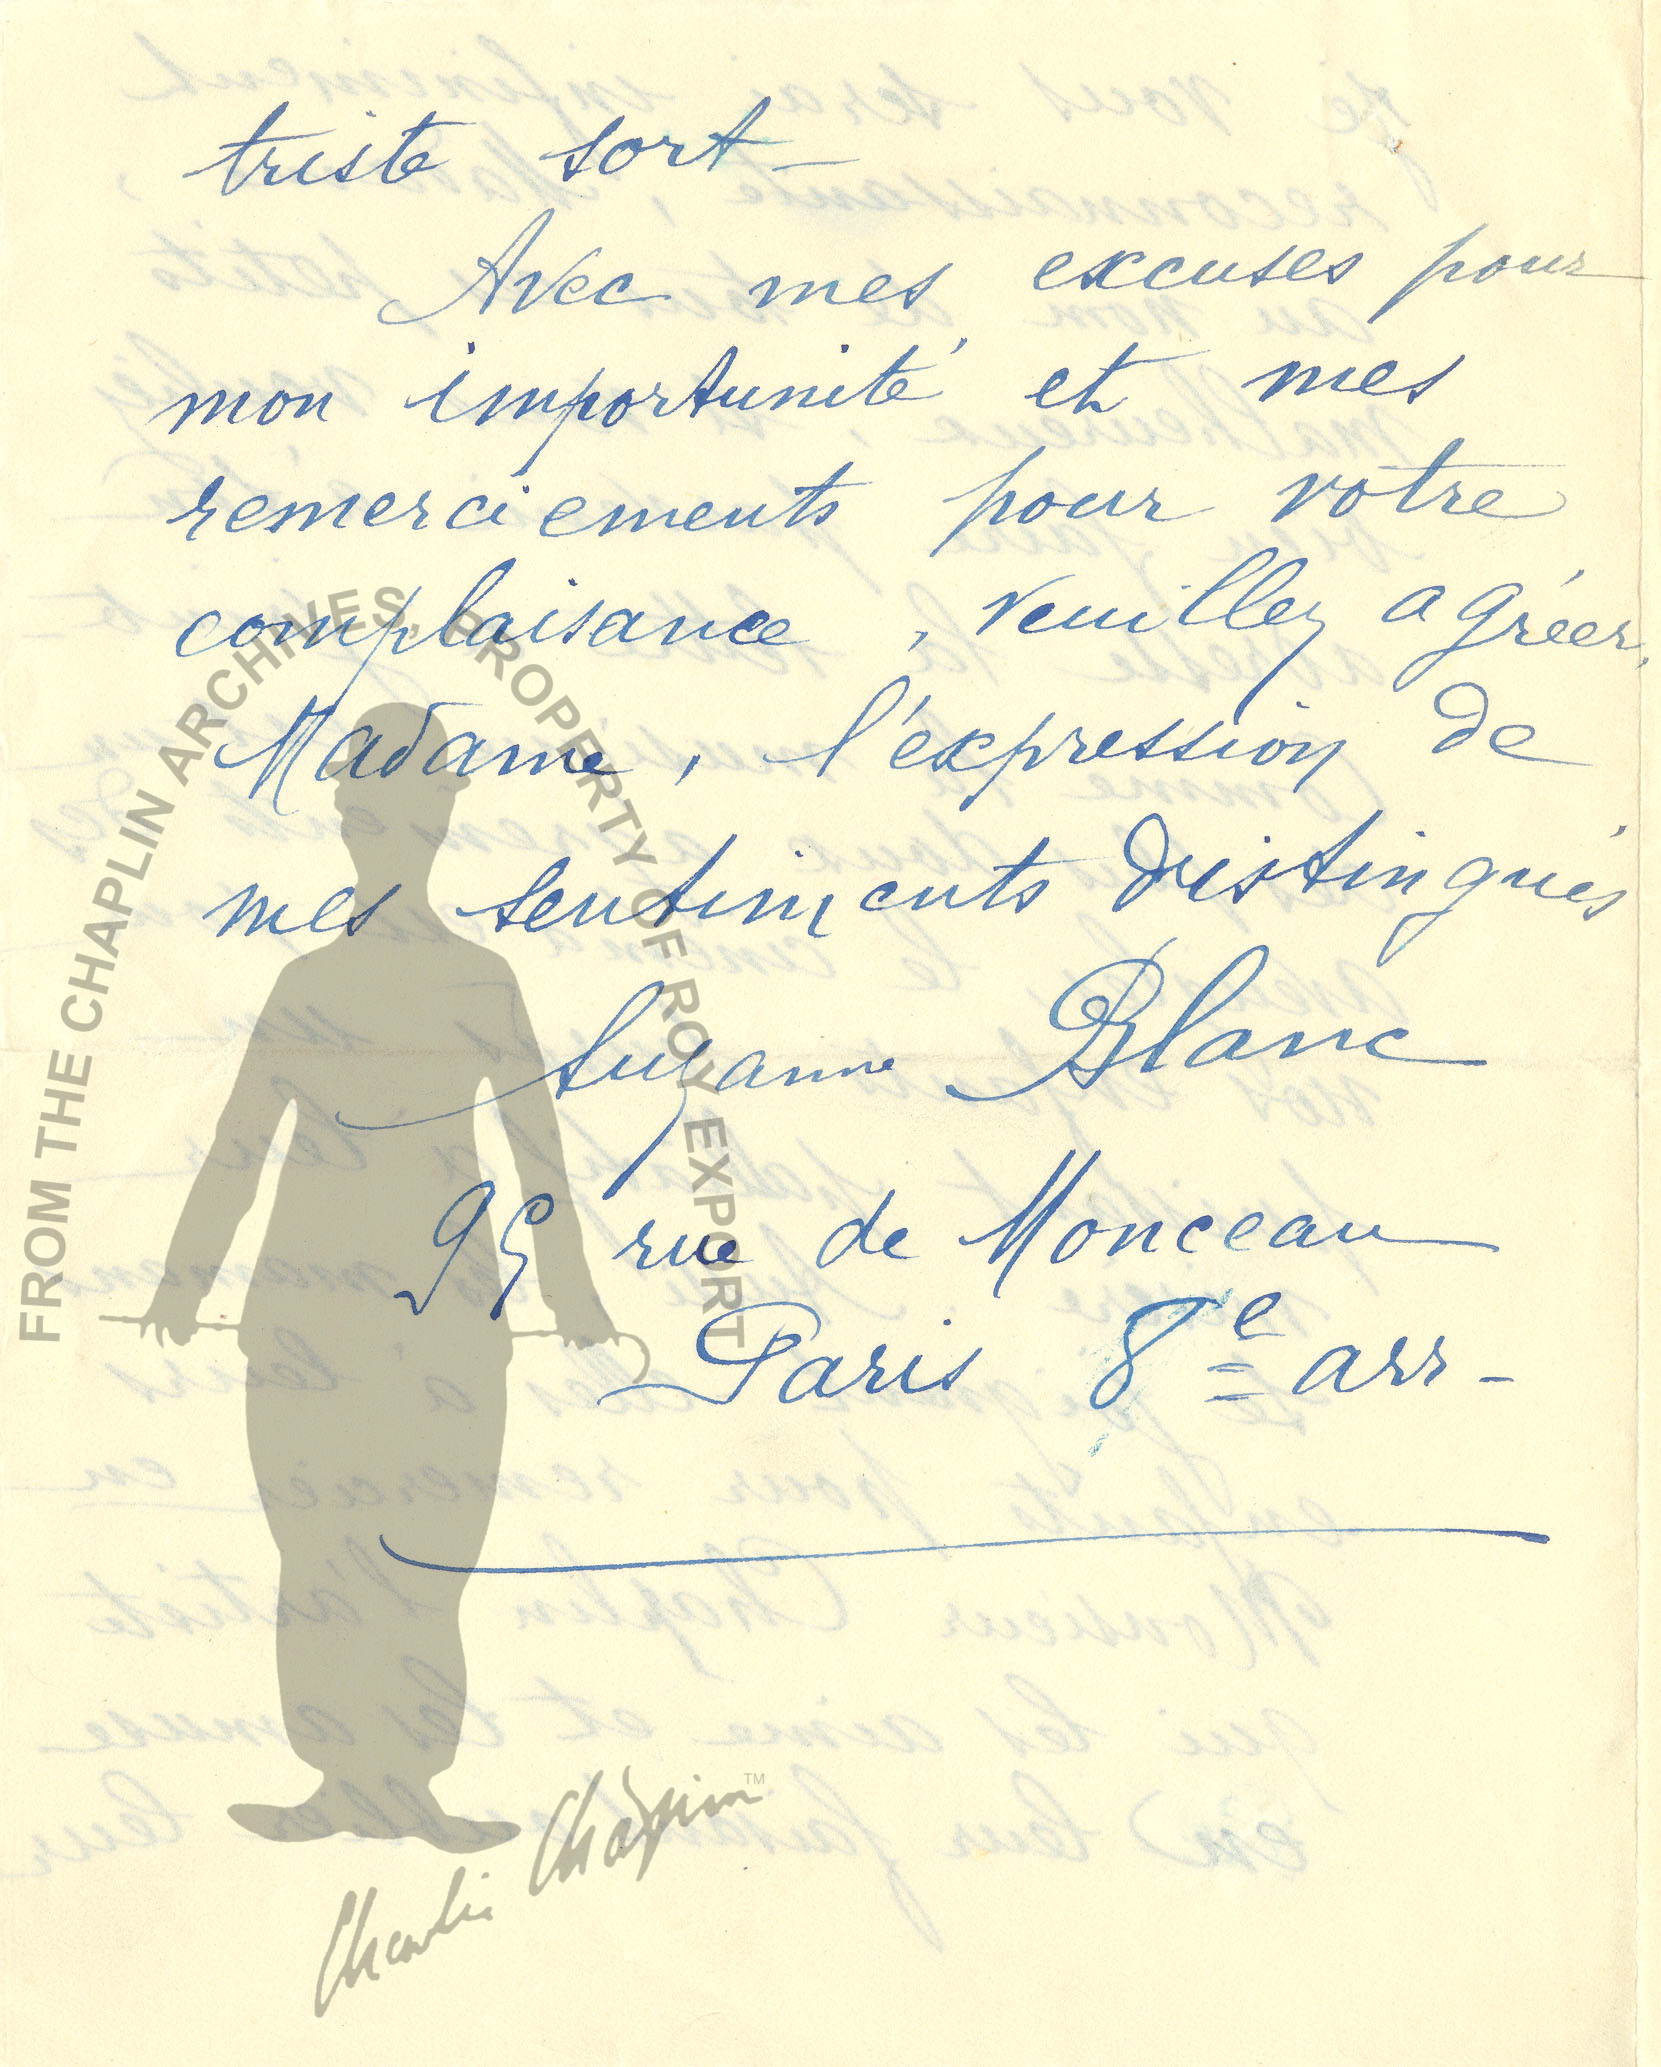 triste sort _
Avec mes excuses pour
mon importunité et mes
remerciements pour votre
complaisance, veuillez agréer,
Madame, l'expression de
mes sentiments distingués
Suzanne Blanc
95 rue de Monceau
Paris 8e arr -
FROM THE CHAPLIN ARCHIVES, PROPERTY OF ROY EXPORT
Charlie Chaplin™